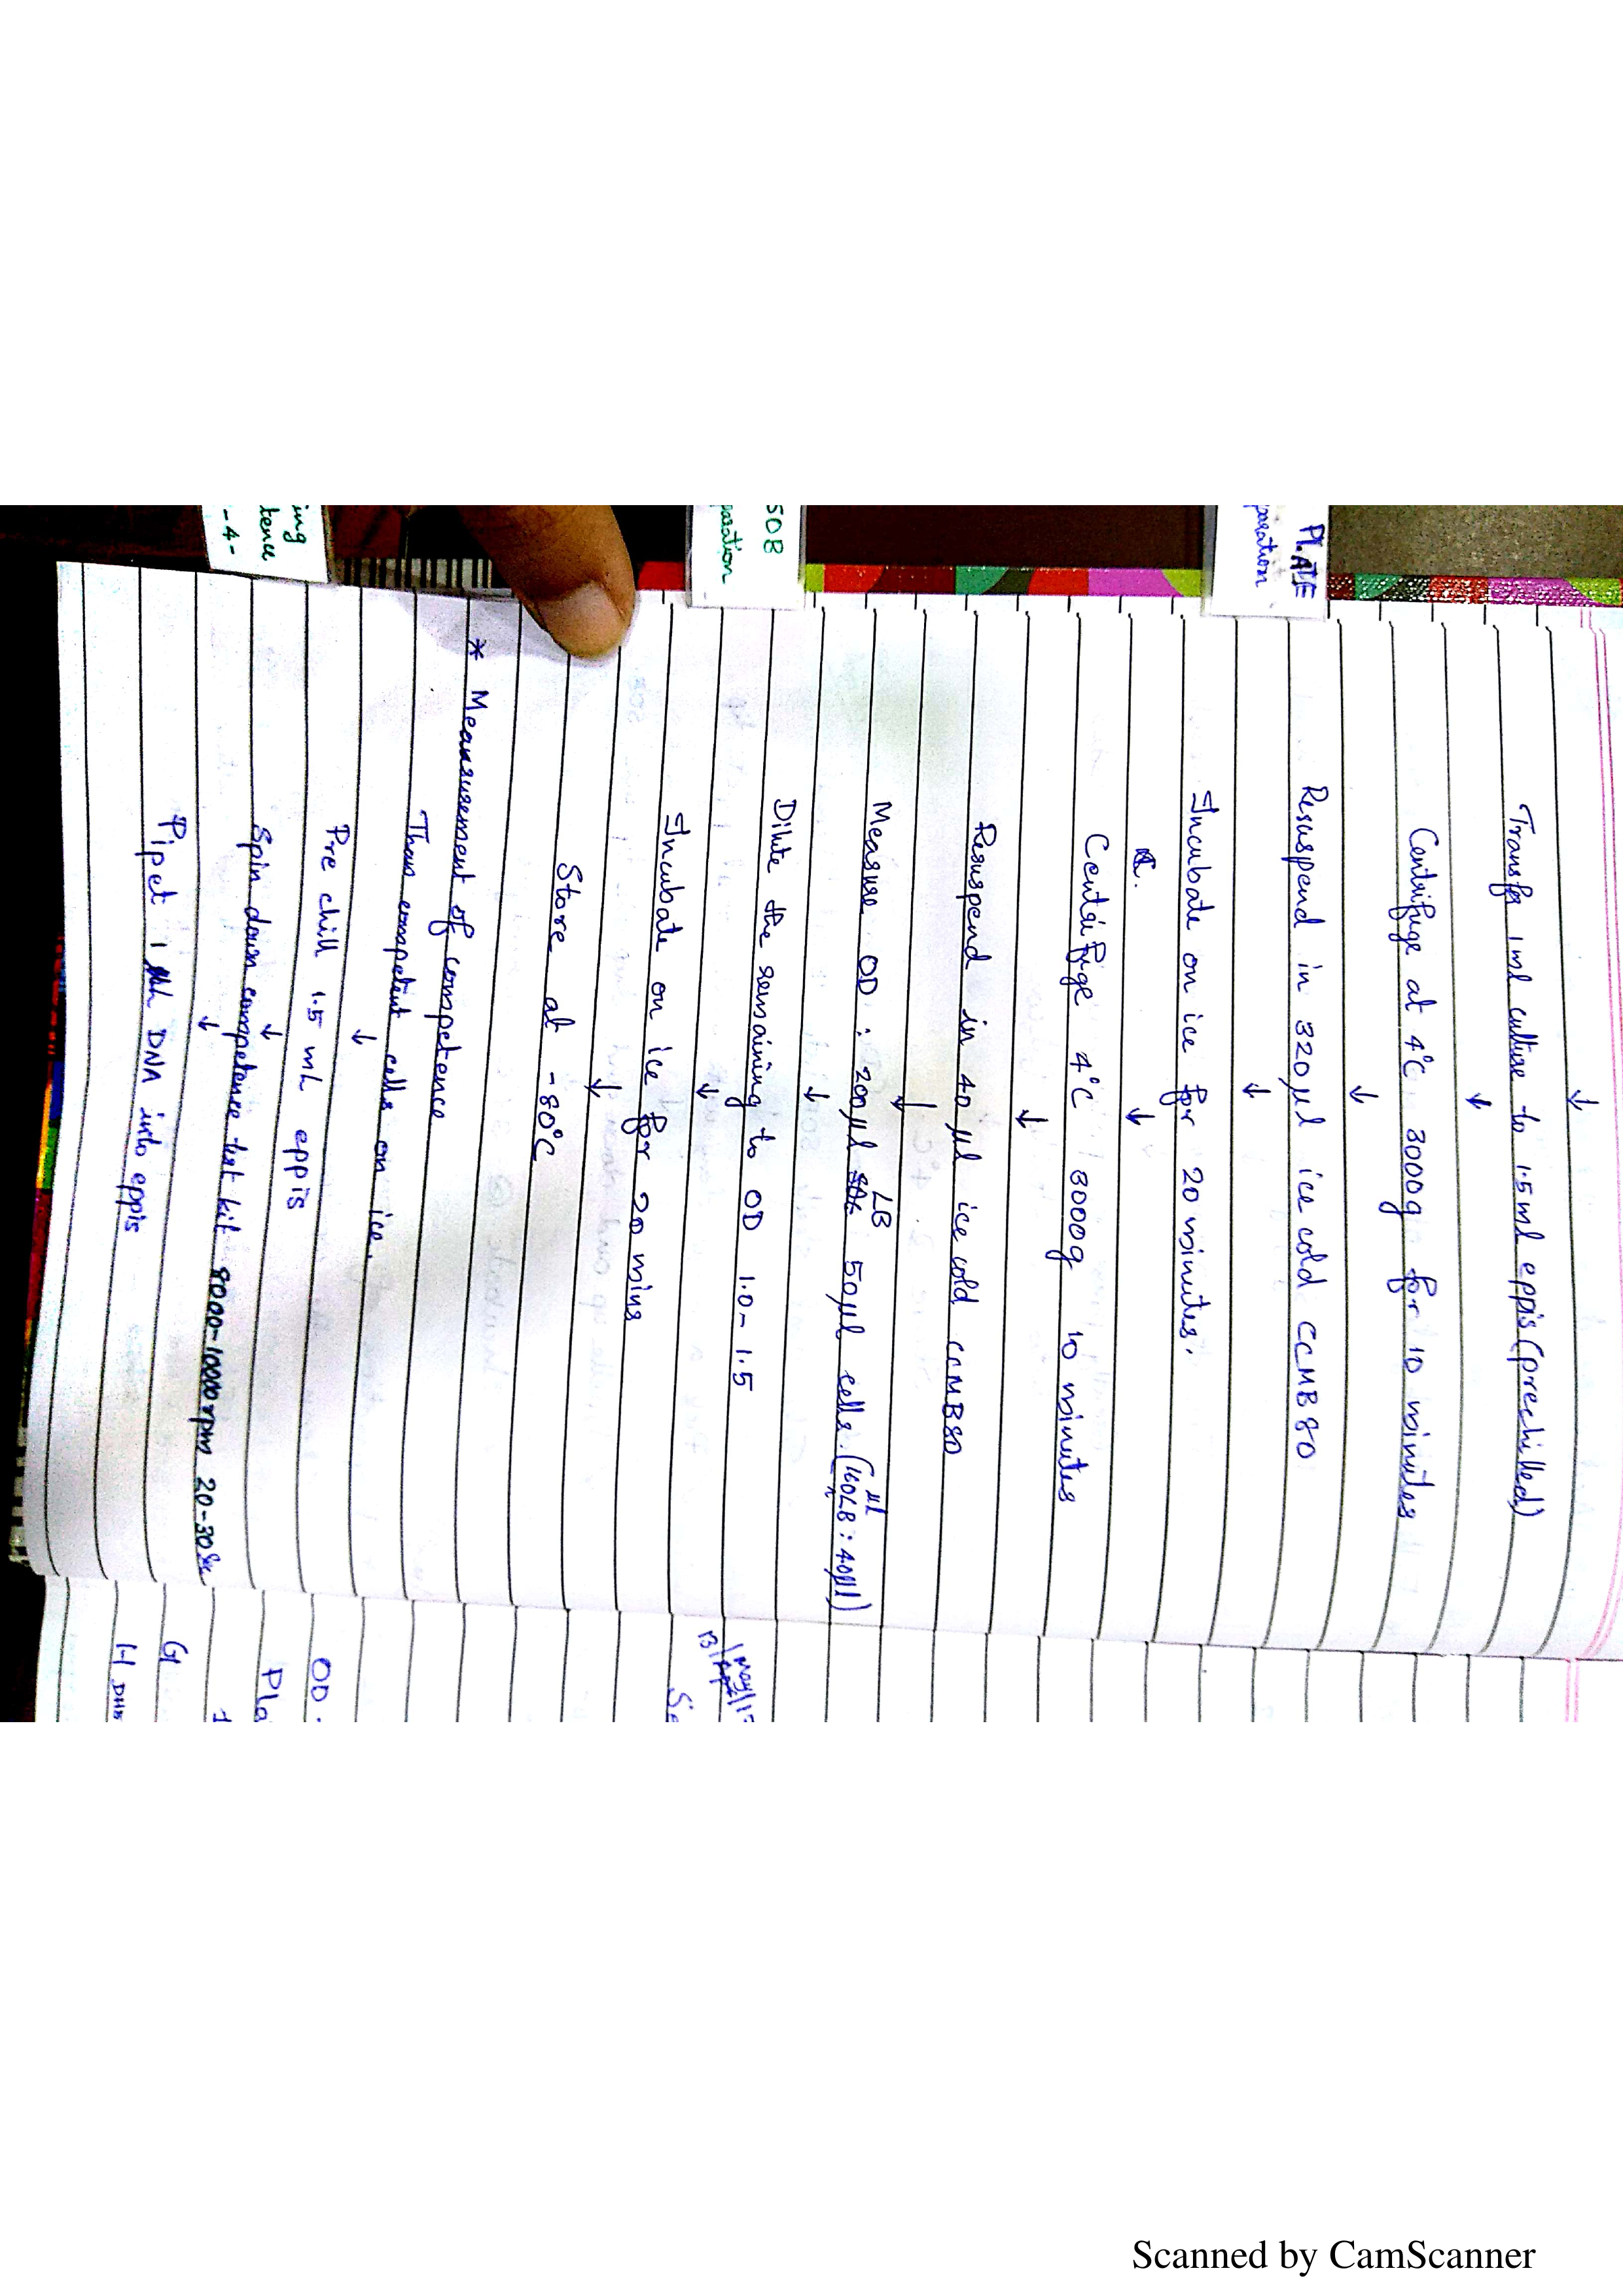 ↓
Transfer 1ml culture to 1.5ml eppis (prechilled)
↓
Centrifuge at 4°C 3000g for 10 minutes
↓
Resuspend in 320µl ice cold CCMB80
↓
Incubate on ice for 20 minutes.
↓
Centrifuge 4°C 3000g 10 minutes
↓
Resuspend in 40 µl ice cold CCMB80
↓
LB µl
Measure OD : 200µl 50µl cells. (160LB : 40µl)
↓
Dilute the remaining to OD 1.0-1.5
↓
Incubate on ice for 20 mins
↓
Store at -80°C
* Measurement of competence
Thaw competent cells on ice.
↓
Pre chill 1.5 mL eppis
↓
Spin down competence test kit 8000-10000rpm 20-30sec
↓
Pipet 1 DNA into eppis
PLATE
paration
SOB
paration
ing
tence
-4-
OD
Pla
G
H DH5
Scanned by CamScanner